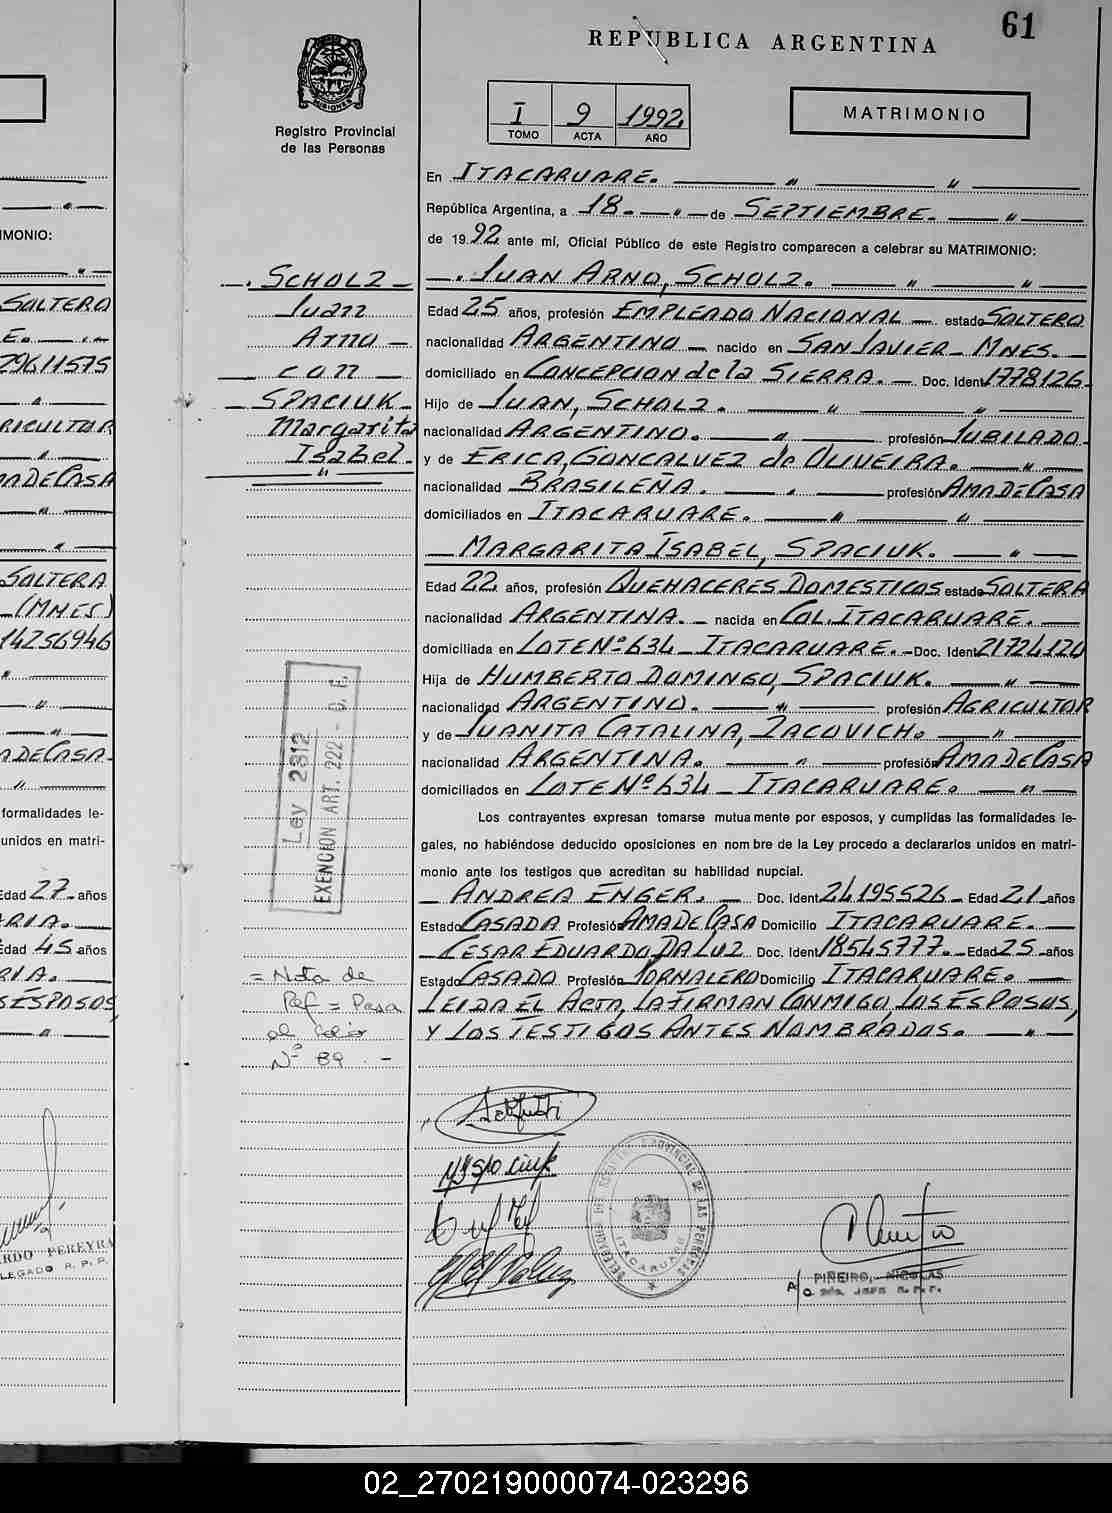 IMONIO:
SOLTERO
E.
29611575
RICULTOR
MADECASA
SOLTERA
(MNES)
14256946
ADECASA
formalidades le-
unidos en matri-
Edad 27 años
ARIA.
Edad 45 años
RIA.
SESPOSOS,
RDO PEREYRA
LEGADO R. P. P.
61
REPUBLICA ARGENTINA
MISIONES
Registro Provincial
de las Personas
I 9 1992
TOMO ACTA AÑO
MATRIMONIO
En ITACARUARE. — " — " —
República Argentina, a 18. — " — de SEPTIEMBRE. — " —
de 1992 ante mí, Oficial Público de este Registro comparecen a celebrar su MATRIMONIO:
—. SCHOLZ —
Juan
Arno —
— con —
— SPACIUK —
Margarita
Isabel.
— " —
—. JUAN ARNO, SCHOLZ. — " — " —
Edad 25 años, profesión EMPLEADO NACIONAL — estado SOLTERO
nacionalidad ARGENTINO — nacido en SAN JAVIER — MNES. —
domiciliado en CONCEPCION de la SIERRA. — Doc. Ident 1778126.
Hijo de JUAN, SCHOLZ. — " — " —
nacionalidad ARGENTINO. — " — profesión JUBILADO.
y de ERICA, GONCALVEZ de OLIVEIRA. — " —
nacionalidad BRASILEÑA. — " — profesión AMA DE CASA
domiciliados en ITACARUARE. — " — " —
— MARGARITA ISABEL, SPACIUK. — " —
Edad 22 años, profesión QUEHACERES DOMESTICOS estado SOLTERA
nacionalidad ARGENTINA. — nacida en COL. ITACARUARE. —
domiciliada en LOTE Nº 634 — ITACARUARE. — Doc. Ident 21724120
Hija de HUMBERTO DOMINGO, SPACIUK. — " —
nacionalidad ARGENTINO. — " — profesión AGRICULTOR
y de JUANITA CATALINA, ZACOVICH. — " —
nacionalidad ARGENTINA. — " — profesión AMA DE CASA
domiciliados en LOTE Nº 634 — ITACARUARE. — " —
Ley 2312
EXENCION ART. 222 - C. F.
Los contrayentes expresan tomarse mutuamente por esposos, y cumplidas las formalidades le-
gales, no habiéndose deducido oposiciones en nombre de la Ley procedo a declararlos unidos en matri-
monio ante los testigos que acreditan su habilidad nupcial.
— ANDREA ENGER. — Doc. Ident 24195526 — Edad 21 años
Estado CASADA Profesión AMA DE CASA Domicilio ITACARUARE. —
— CESAR EDUARDO DA LUZ Doc. Ident 18545777. — Edad 25 años
Estado CASADO Profesión JORNALERO Domicilio ITACARUARE. —
LEIDA EL ACTA, LA FIRMAN CONMIGO, LOS ESPOSOS,
Y LOS TESTIGOS ANTES NOMBRADOS. — " —
= Nota de
Ref = Pasa
al folio
Nº 89. —
ITACARUARE
PIÑEIRO, NICOLAS
02_270219000074-023296